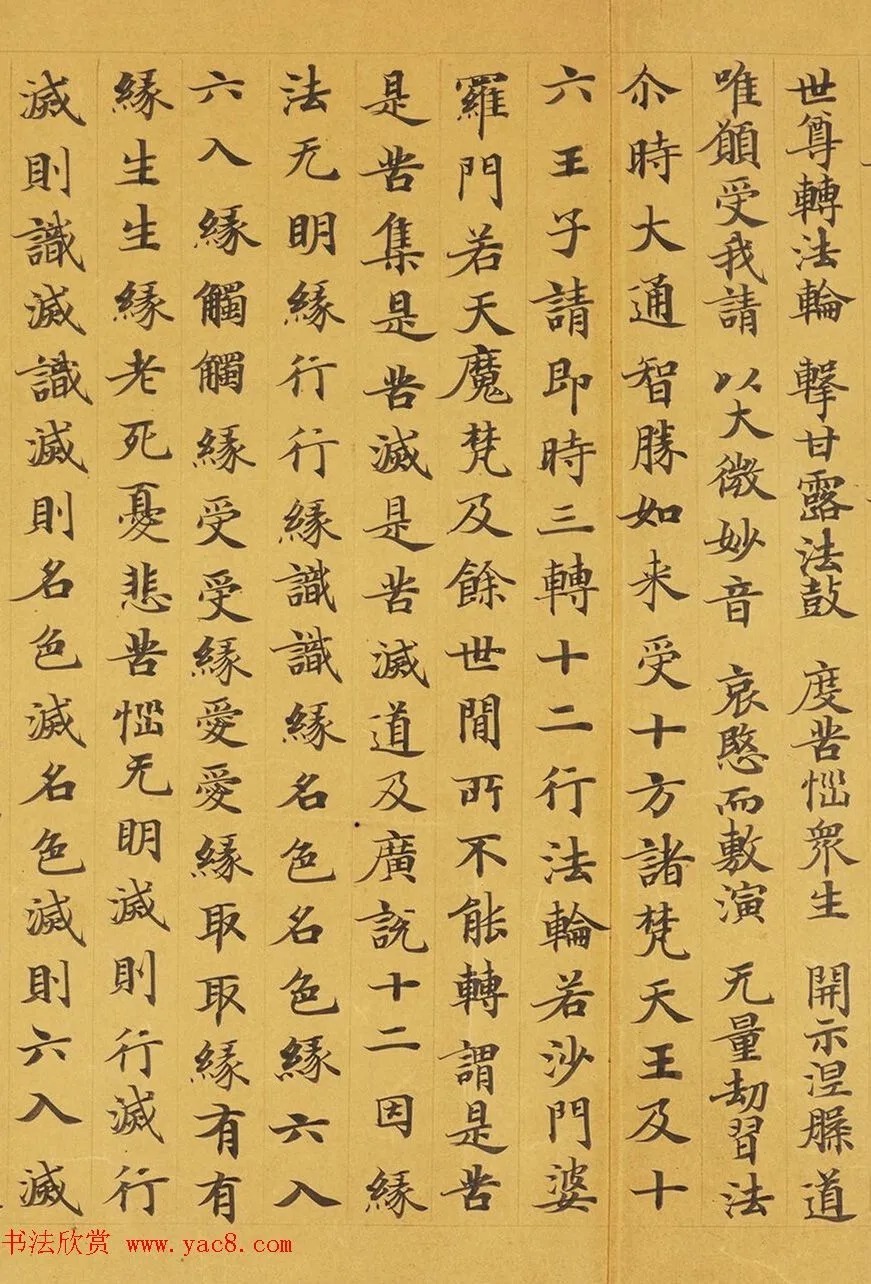 世尊轉法輪 擊甘露法鼓 度苦惱衆生 開示涅槃道
唯願受我請 以大微妙音 哀愍而敷演 无量劫習法
尒時大通智勝如来受十方諸梵天王及十
六王子請即時三轉十二行法輪若沙門婆
羅門若天魔梵及餘世間所不能轉謂是苦
是苦集是苦滅是苦滅道及廣說十二因緣
法无明緣行行緣識識緣名色名色緣六入
六入緣觸觸緣受受緣愛愛緣取取緣有有
緣生生緣老死憂悲苦惱无明滅則行滅行
滅則識滅識滅則名色滅名色滅則六入滅
书法欣赏 www.yac8.com